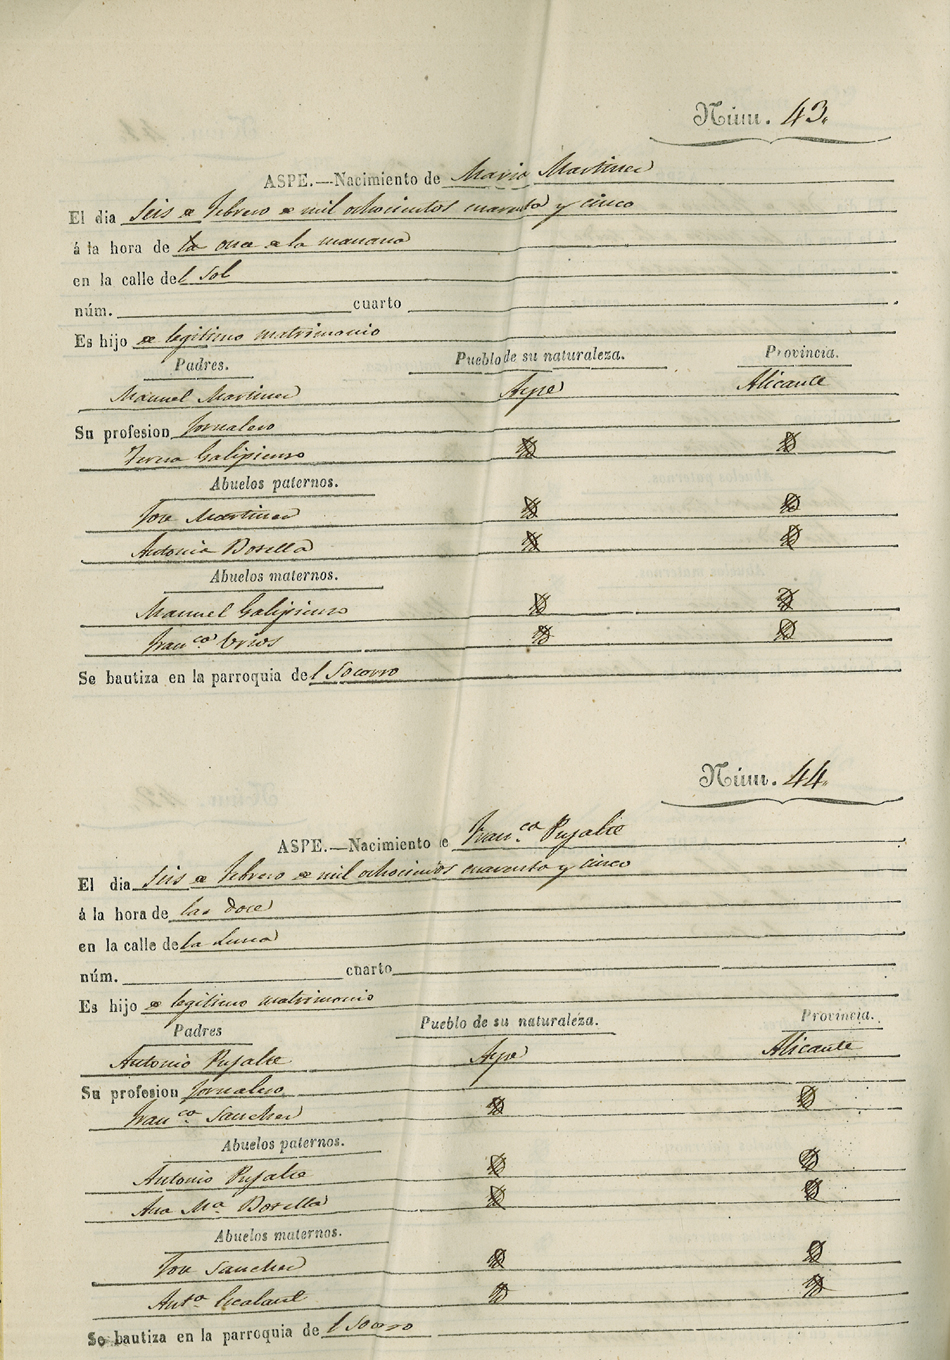 Núm. 43.
ASPE.—Nacimiento de Maria Martinez
El dia seis de Febrero de mil ochocientos cuarenta y cinco
á la hora de la once de la mañana
en la calle del Sol
núm. cuarto
Es hijo de legitimo matrimonio
Padres. Pueblo de su naturaleza. Provincia.
Manuel Martinez Aspe Alicante
Su profesion Jornalero
Teresa Galipienso
Abuelos paternos.
Jose Martinez
Antonia Botella
Abuelos maternos.
Manuel Galipienso
Franca. Urios
Se bautiza en la parroquia del Socorro
Núm. 44.
ASPE.—Nacimiento de Franca. Pujalte
El dia seis de Febrero de mil ochocientos cuarenta y cinco
á la hora de las doce
en la calle de la Luna
núm. cuarto
Es hijo de legitimo matrimonio
Padres Pueblo de su naturaleza. Provincia.
Antonio Pujalte Aspe Alicante
Su profesion Jornalero
Franca. Sanchez
Abuelos paternos.
Antonio Pujalte
Ana Ma. Botella
Abuelos maternos.
Jose Sanchez
Anta. Escalant
Se bautiza en la parroquia del Socorro